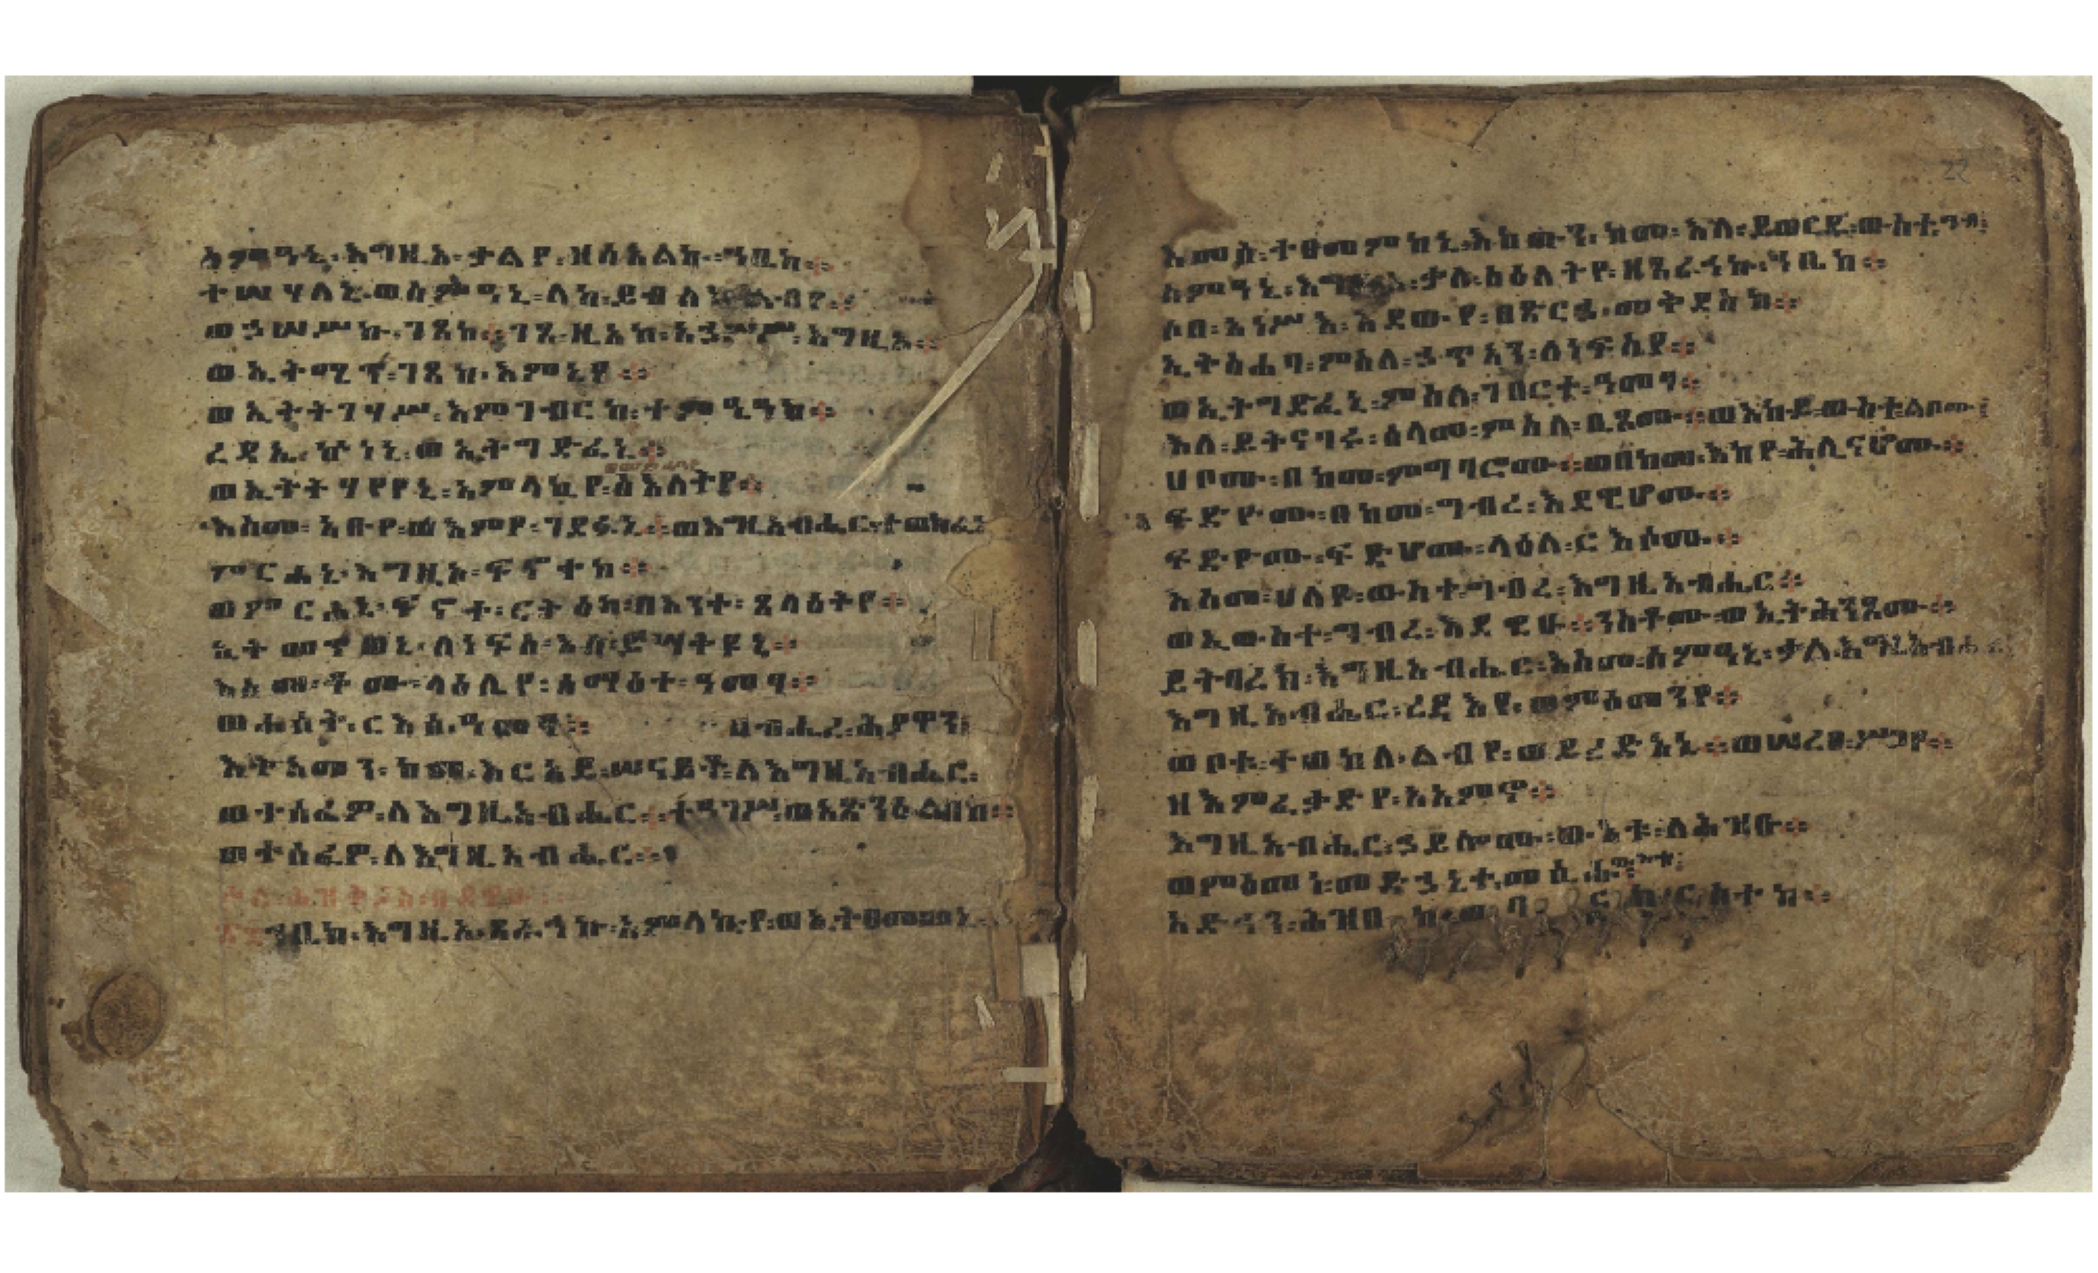 ስምዓኒ፡እግዚኦ፡ቃልየ፡ዘሰአልኩ፡ኀቤከ፨
ተሣሃለኒ፡ወስምዓኒ፡ለከ፡ይብለከ፡ልብየ፨
ወኃሠሥኩ፡ገጸከ፨ገጸ፡ዚአከ፡አኃሥሥ፡እግዚኦ፨
ወኢትሚጥ፡ገጸከ፡እምኔየ፨
ወኢትትገሃሥ፡እምገብርከ፡ተምዒዓከ፨
ረዳኤ፡ኩነኒ፡ወኢትግድፈኒ፨
ወኢትትሃየየኒ፡አምላኪየ፡
እስመ፡አቡየ፡ወእምየ፡ገደፉኒ፨ወእግዚአብሔር፡ተወክፈ፤
ምርሐኒ፡እግዚኦ፡ፍኖተከ፨
ወምርሐኒ፡ፍኖተ፡ርትዕከ፡በእንተ፡ጸላዕትየ፨
ኢትመጥወኒ፡ለነፍሰ፡እለ፡ይሣቅዩኒ፨
እስመ፡ቆሙ፡ላዕሌየ፡ሰማዕተ፡ዓመፃ፨
ወሐሰት፡ርእሰ፡ዓመፃ፨ በብሔረ፡ሕያዋን፤
እትአመን፡ከመ፡እርአይ፡ሠናይቶ፡ለእግዚአብሔር፡
ወተሰፈም፡ለእግዚአብሔር፨ተዓገሥ፡ወአጽንዕ፡ልበከ፨
ወተሰፈዎ፡ለእግዚአብሔር፨
ኀቤከ፡እግዚኦ፡ጸራኅኩ፡አምላኪየ፡ወኢትፀመመኒ፨
እመሰ፡ተፀመምከኒ፡እከውን፡ከመ፡እለ፡ይወርዱ፡ውስተ፡
ስምዓኒ፡እግዚኦ፡ቃለ፡ስዕለትየ፡ዘጸራኅኩ፡ኀቤከ፨
ሶበ፡አነሥእ፡እደውየ፡በጽርሐ፡መቅደስከ፨
ኢትስሐባ፡ምስለ፡ኃጥአን፡ለነፍስየ፨
ወኢትግድፈኒ፡ምስለ፡ገበርተ፡ዓመፃ፨
እለ፡ይትናገሩ፡ሰላመ፡ምስለ፡ቢጾሙ፨ወእከይ፡ውስተ፡ልቦሙ፤
ሀቦሙ፡በከመ፡ምግባሮሙ፨ወበከመ፡እከየ፡ሕሊናሆሙ፨
ፍድዮሙ፡በከመ፡ግብረ፡እደዊሆሙ፨
ፍድዮሙ፡ፍዳሆሙ፡ላዕለ፡ርእሶሙ፨
እስመ፡ሀለዩ፡ውስተ፡ግብረ፡እግዚአብሔር፨
ወኢውስተ፡ግብረ፡እደዊሁ፨ንስቶሙ፡ወኢትሕንጾሙ፨
ይትባረክ፡እግዚአብሔር፡እስመ፡ሰምዓኒ፡ቃለ፡
እግዚአብሔር፡ረዳእየ፡ወምዕመንየ፨
ወቦቱ፡ተወከለ፡ልብየ፡ወይረድአኒ፨ወሠረፀ፡ሥጋየ፨
ዘእምፈቃድየ፡አአምኖ፨
እግዚአብሔር፡ኃይሎሙ፡ውእቱ፡ለሕዝቡ፨
ወምዕመነ፡መድኃኒተ፡መሲሑ፡ውእቱ፤
አድኅን፡ሕዝበ
22